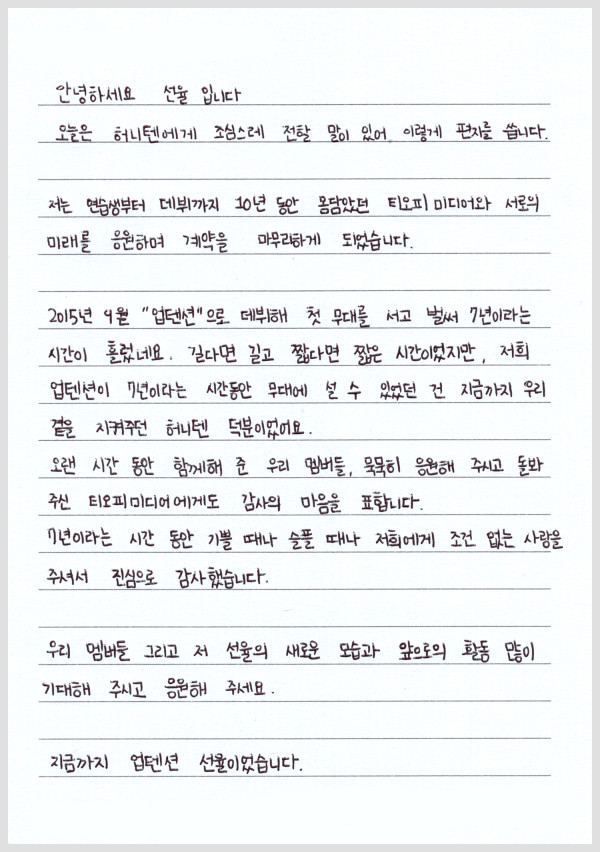 안녕하세요 선율 입니다
오늘은 허니텐에게 조심스레 전할 말이 있어 이렇게 편지를 씁니다.
저는 연습생부터 데뷔까지 10년 동안 몸담았던 티오피 미디어와 서로의
미래를 응원하며 계약을 마무리하게 되었습니다.
2015년 9월 "업텐션"으로 데뷔해 첫 무대를 서고 벌써 7년이라는
시간이 흘렀네요. 길다면 길고 짧다면 짧은 시간이었지만, 저희
업텐션이 7년이라는 시간동안 무대에 설 수 있었던 건 지금까지 우리
곁을 지켜주던 허니텐 덕분이었어요.
오랜 시간 동안 함께해 준 우리 멤버들, 묵묵히 응원해 주시고 돌봐
주신 티오피미디어에게도 감사의 마음을 표합니다.
7년이라는 시간 동안 기쁠 때나 슬플 때나 저희에게 조건 없는 사랑을
주셔서 진심으로 감사했습니다.
우리 멤버들 그리고 저 선율의 새로운 모습과 앞으로의 활동 많이
기대해 주시고 응원해 주세요.
지금까지 업텐션 선율이었습니다.